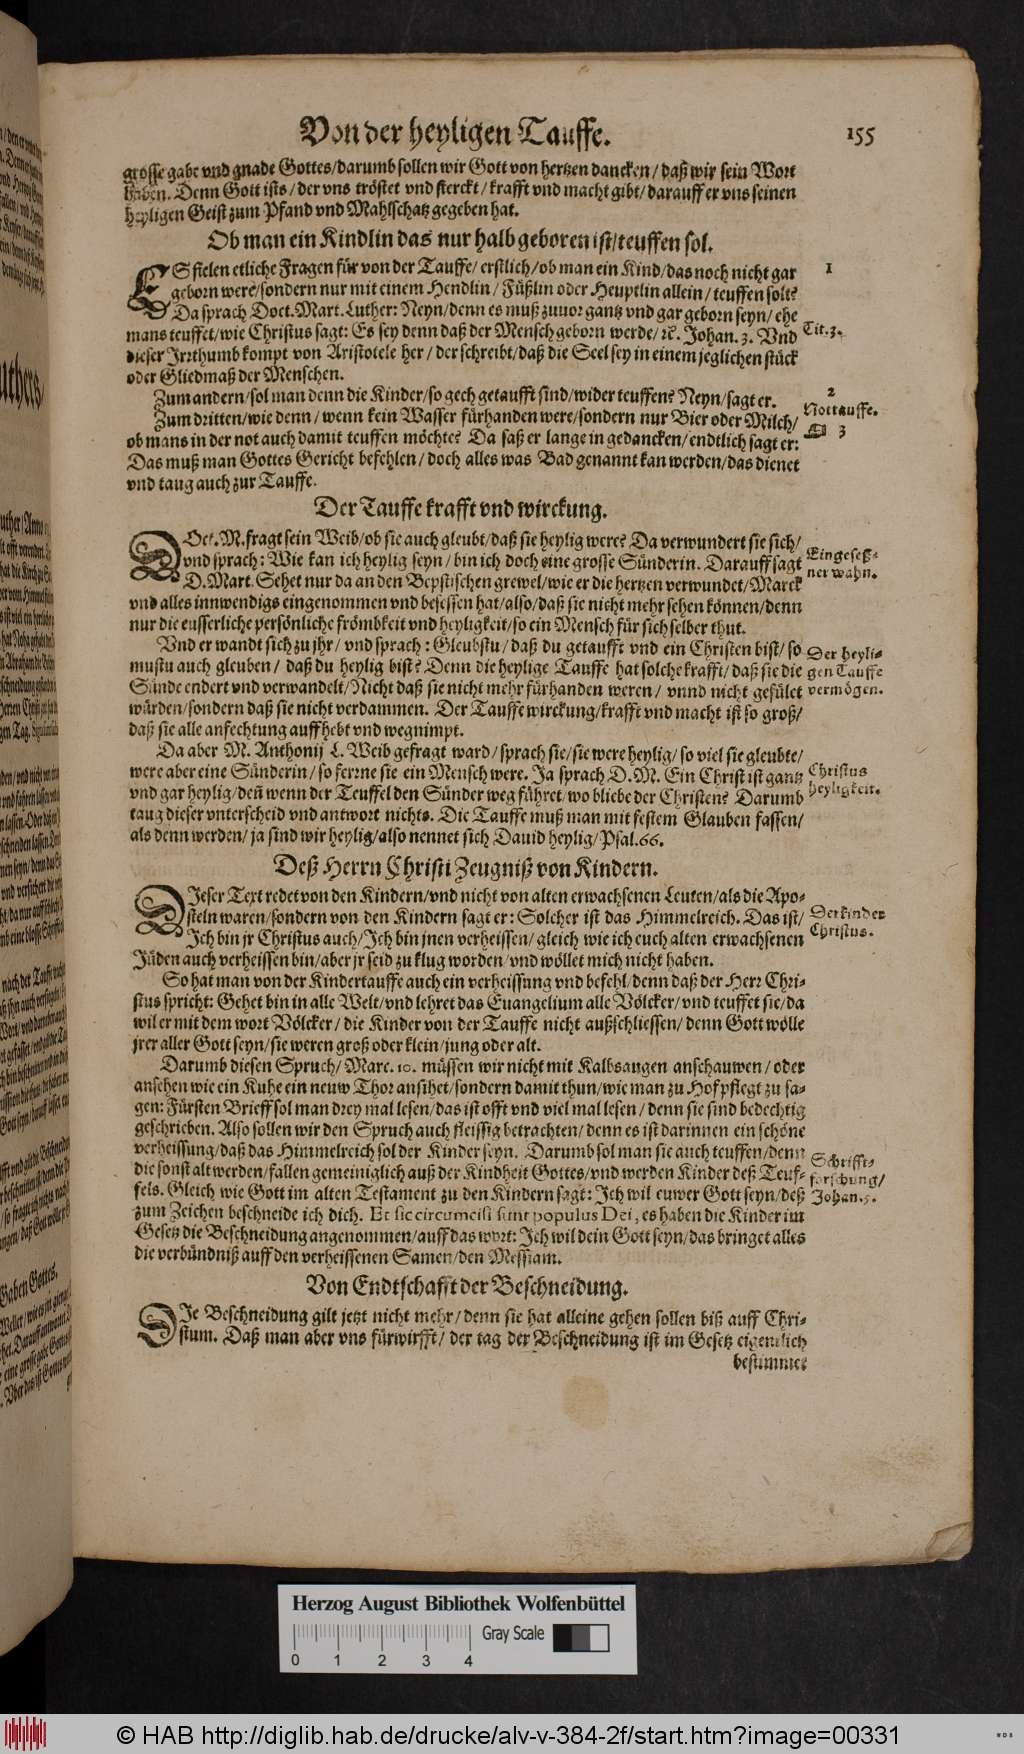 Von der heyligen Tauffe. 155
grosse gabe vnd gnade Gottes/darumb sollen wir Gott von hertzen dancken/ daß wir sein Wort
haben. Denn Gott ists/ der vns tröstet vnd sterckt/ krafft vnd macht gibt/ darauff er vns seinen
heyligen Geist zum Pfand vnd Mahlschatz gegeben hat.
Ob man ein Kindlin das nur halb geboren ist/teuffen sol.
ES fielen etliche Fragen für von der Tauffe/ erstlich/ob man ein Kind/das noch nicht gar
geborn were/sondern nur mit einem Hendlin/ Füßlin oder Heuptlin allein/ teuffen solt?
Da sprach Doct. Mart. Luther: Neyn/denn es muß zuuor gantz vnd gar geborn seyn/ ehe
mans teuffet/wie Christus sagt: Es sey denn daß der Mensch geborn werde/ ꝛc. Johan. 3. Vnd
dieser Irrthumb kompt von Aristotele her/ der schreibt/daß die Seel sey in einem jeglichen stück
oder Gliedmaß der Menschen.
1
Tit. 3.
Zum andern/sol man denn die Kinder/so gech getaufft sind/wider teuffen? Neyn/sagt er.
Zum dritten/wie denn/ wenn kein Wasser fürhanden were/sondern nur Bier oder Milch/
ob mans in der not auch damit teuffen möchte? Da saß er lange in gedancken/endtlich sagt er:
Das muß man Gottes Gericht befehlen/ doch alles was Bad genannt kan werden/das dienet
vnd taug auch zur Tauffe.
2
Nottauffe.
☞ 3
Der Tauffe krafft vnd wirckung.
DOct. M. fragt sein Weib/ob sie auch gleubt/daß sie heylig were? Da verwundert sie sich/
vnd sprach: Wie kan ich heylig seyn/ bin ich doch eine grosse Sünderin. Darauff sagt
D. Mart. Sehet nur da an den Bepstischen grewel/wie er die hertzen verwundet/Marck
vnd alles innwendigs eingenommen vnd besessen hat/also/daß sie nicht mehr sehen können/denn
nur die eusserliche persönliche frömbkeit vnd heyligkeit/so ein Mensch für sich selber thut.
Eingeseß-
ner wahn.
Vnd er wandt sich zu jhr/ vnd sprach: Gleubstu/ daß du getaufft vnd ein Christen bist/ so
mustu auch gleuben/ daß du heylig bist? Denn die heylige Tauffe hat solche krafft/ daß sie die
Sünde endert vnd verwandelt/Nicht daß sie nicht mehr fürhanden weren/ vnnd nicht gefület
würden/sondern daß sie nicht verdammen. Der Tauffe wirckung/krafft vnd macht ist so groß/
daß sie alle anfechtung auffhebt vnd wegnimpt.
Der heyli-
gen Tauffe
vermögen.
Da aber M. Anthonij L. Weib gefragt ward/ sprach sie/sie were heylig/ so viel sie gleubte/
were aber eine Sünderin/ so ferrne sie ein Mensch were. Ja sprach D. M. Ein Christ ist gantz
vnd gar heylig/deñ wenn der Teuffel den Sünder weg führet/wo bliebe der Christen? Darumb
taug dieser vnterscheid vnd antwort nichts. Die Tauffe muß man mit festem Glauben fassen/
als denn werden/ ja sind wir heylig/also nennet sich Dauid heylig/Psal.66.
Christus
heyligkeit.
Deß Herrn Christi Zeugniß von Kindern.
DIeser Text redet von den Kindern/vnd nicht von alten erwachsenen Leuten/als die Apo-
steln waren/sondern von den Kindern sagt er: Solcher ist das Himmelreich. Das ist/
Ich bin jr Christus auch/Ich bin jnen verheissen/ gleich wie ich euch alten erwachsenen
Jüden auch verheissen bin/aber jr seid zu klug worden/vnd wöllet mich nicht haben.
Der kinder
Christus.
So hat man von der Kindertauffe auch ein verheissung vnd befehl/denn daß der Herr Chri-
stus spricht: Gehet hin in alle Welt/vnd lehret das Euangelium alle Völcker/vnd teuffet sie/da
wil er mit dem wort Völcker/ die Kinder von der Tauffe nicht außschliessen/denn Gott wölle
jrer aller Gott seyn/sie weren groß oder klein/jung oder alt.
Darumb diesen Spruch/Marc. 10. müssen wir nicht mit Kalbsaugen anschauwen/ oder
ansehen wie ein Kuhe ein neuw Thor ansihet/sondern damit thun/wie man zu Hof pflegt zu sa-
gen: Fürsten Brieff sol man drey mal lesen/das ist offt vnd viel mal lesen/ denn sie sind bedechtig
geschrieben. Also sollen wir den Spruch auch fleissig betrachten/ denn es ist darinnen ein schöne
verheissung/daß das Himmelreich sol der Kinder seyn. Darumb sol man sie auch teuffen/denn
die sonst alt werden/fallen gemeiniglich auß der Kindheit Gottes/vnd werden Kinder deß Teuf-
fels. Gleich wie Gott im alten Testament zu den Kindern sagt: Ich wil euwer Gott seyn/deß
zum Zeichen beschneide ich dich. Et sic circumcisi sunt populus Dei, es haben die Kinder im
Gesetz die Beschneidung angenommen/auff das wort: Ich wil dein Gott seyn/das bringet alles
die verbündniß auff den verheissenen Samen/den Messiam.
Schrifft-
forschung/
Johan. 5.
Von Endtschafft der Beschneidung.
DIe Beschneidung gilt jetzt nicht mehr/denn sie hat alleine gehen sollen biß auff Chri-
stum. Daß man aber vns fürwirfft/ der tag der Beschneidung ist im Gesetz eigentlich
bestimmet
Herzog August Bibliothek Wolfenbüttel
Gray Scale
0 1 2 3 4
© HAB http://diglib.hab.de/drucke/alv-v-384-2f/start.htm?image=00331